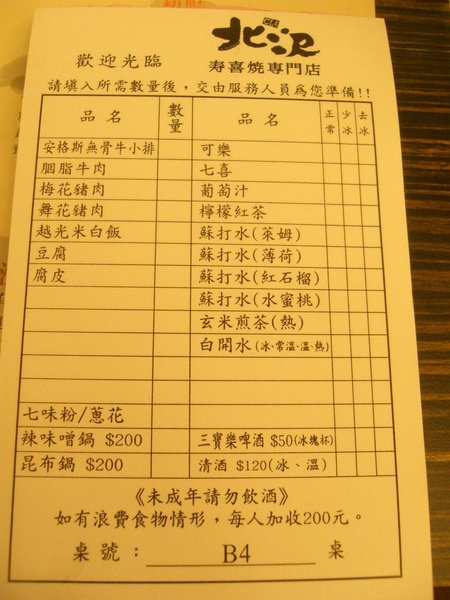 北澤
歡迎光臨
寿喜燒専門店
請填入所需數量後，交由服務人員為您準備!!
品名 數量 品名 正常 少冰 去冰
安格斯無骨牛小排 可樂
胭脂牛肉 七喜
梅花豬肉 葡萄汁
舞花豬肉 檸檬紅茶
越光米白飯 蘇打水(萊姆)
豆腐 蘇打水(薄荷)
腐皮 蘇打水(紅石榴)
蘇打水(水蜜桃)
玄米煎茶(熱)
白開水(冰、常溫、溫、熱)
七味粉/蔥花
辣味噌鍋 $200 三寶樂啤酒 $50(冰塊杯)
昆布鍋 $200 清酒 $120(冰、溫)
《未成年請勿飲酒》
如有浪費食物情形，每人加收200元。
桌號： B4 桌